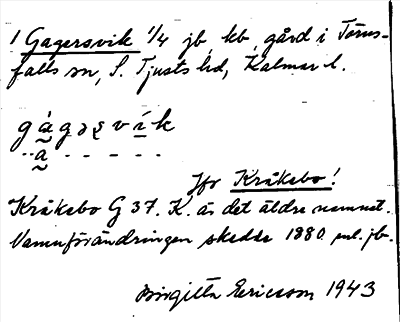 1 Gagersvik 1/4 jb kb gård i Törns-
falls sn, S. Tjusts hd, Kalmar l.
gàgəʂvík
Jfr Kråkebo!
Kråkebo G 37. K. är det äldre namnet.
Namnförändringen skedde 1880 enl. jb.
Birgitta Ericsson 1943